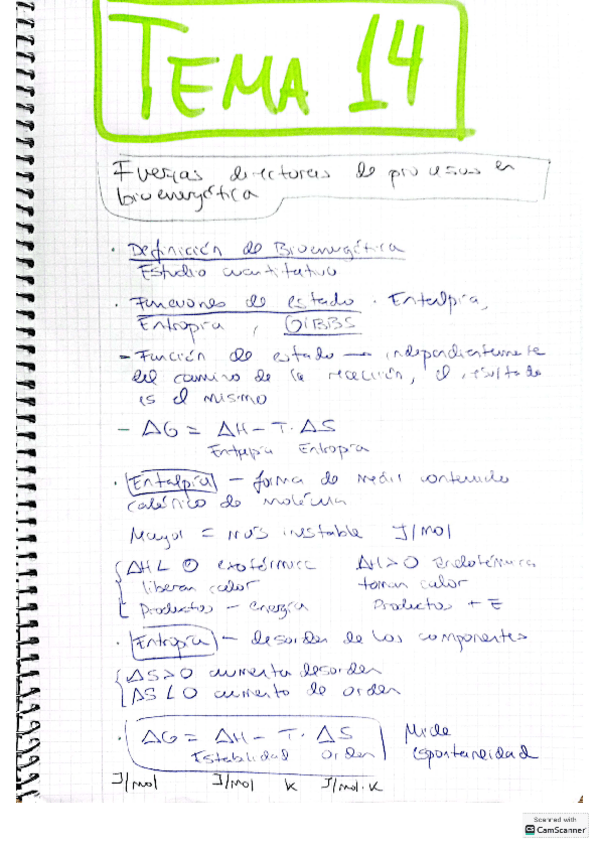 TEMA 14
Fuerzas directoras de procesos en
bioenergética
· Definición de Bioenergética
Estudio cuantitativo
· Funciones de estado · Entalpía,
Entropía, GIBBS
- Función de estado → independientemente
del camino de la reacción, el resultado
es el mismo
- ΔG = ΔH - T · ΔS
Entalpía Entropía
· Entalpía - forma de medir contenido
calórico de molécula
Mayor = más inestable J/mol
ΔH < 0 exotérmica ΔH > 0 Endotérmica
liberan calor toman calor
Productos - energía Productos + E
· Entropía - desorden de los componentes
ΔS > 0 aumenta desorden
ΔS < 0 aumento de orden
· ΔG = ΔH - T · ΔS Mide
Estabilidad orden espontaneidad
J/mol J/mol K J/mol·K
Scanned with
CamScanner